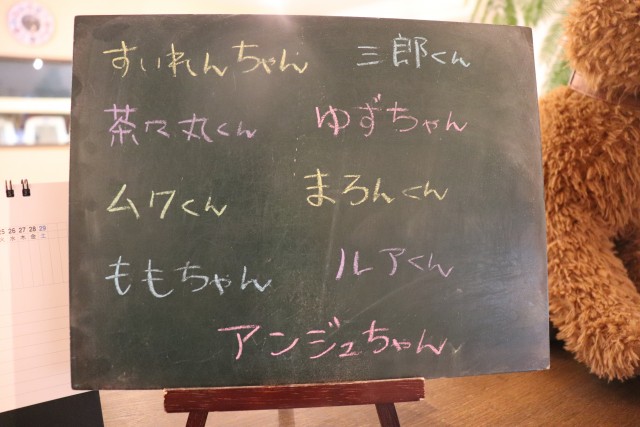 すいれんちゃん 三郎くん
茶々丸くん ゆずちゃん
ムワくん まろんくん
ももちゃん ルアくん
アンジュちゃん
25 26 27 28 29
火 水 木 金 土